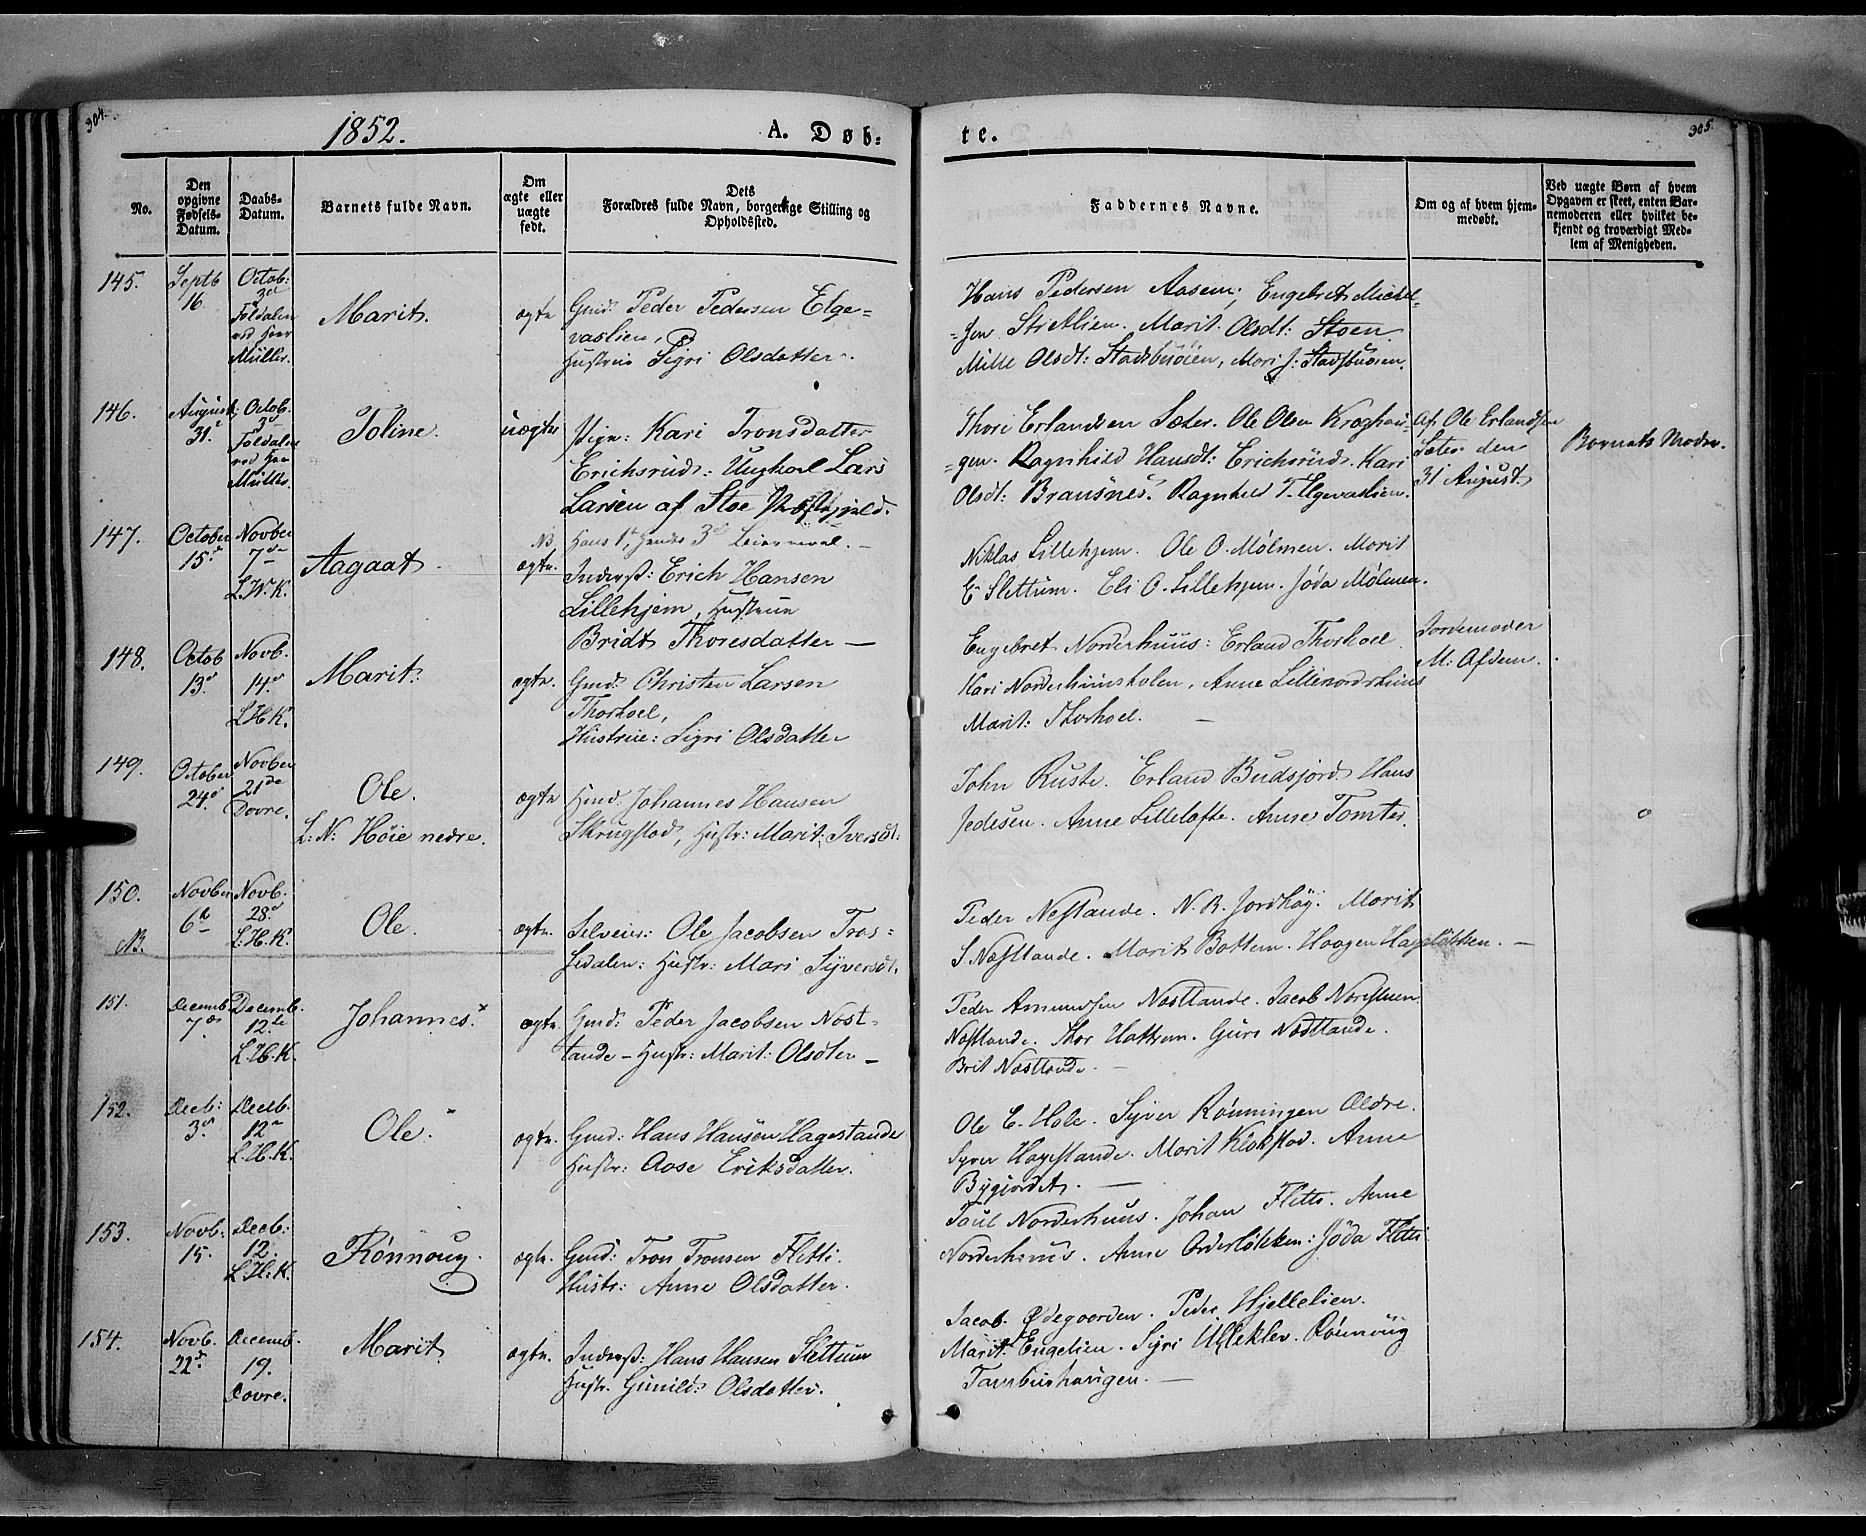 304.
1852.
A. Døb-
te.
305.
No.
Den opgivne Fødsels-Datum.
Daabs-Datum.
Barnets fulde Navn.
Om ægte eller uægte født.
Dets Forældres fulde Navn, borgerlige Stilling og Opholdssted.
Faddernes Navne.
Om og af hvem hjem-medøbt.
Ved uægte Børn af hvem Opgaven er skeet, enten Bar-nemoderen eller hvilket be-kjendt og troværdigt Med-lem af Menigheden.
145.
Septb 16.
Octob: 3d Foldalen ved Herr Müller.
Marit.
ægte
Gmd: Peder Pedersen Elge=
vaslien,
Hustrue Sigri Olsdatter.
Hans Pedersen Aasen, Engebret Mickel-
-sen Stretlien. Marit Olsdt: Stoen
Mille Olsdt: Stadsbuøien, Mari J: Stadsbuøien.
146.
August 31.
Octob. 3d Foldalen ved Herr Müller.
Toline.
uægte
Pige: Kari Tronsdatter
Erichsrud: Ungkarl Lars
Larsen af Stoe Præstegjeld.
NB Hans 1te, hendes 3die Leiermaal.
Thore Erlandsen Sæter. Ole Olsen Kroghau-
=gen. Ragnhild Hansdt: Erichsrud. Kari
Olsdt: Bransnes. Ragnhild T. Elgevaslien.
Af Ole Erlandsen
Sæter den
31 August
Barnets Moder.
147.
October 15d
Novber 7de L.W.K.
Aagaat
ægte.
Inderst: Erich Hansen
Lillehjem, Hustrue
Bridt Thoresdatter —
Niklas Lillehjem. Ole O. Mølmen. Marit
E Slettum. Eli O. Lillehjem. Jøda Mølmen.
148.
Octob 13d
Novb. 14d L.H.K.
Marit.
ægte.
Gmd: Christen Larsen
Thorhoel,
Hustrue: Sigri Olsdatter
Engebret Norderhuus: Erland Thorhoel.
Kari Norderhuusholen, Anne Lillenordrhuus
Marit: Thorhoel. —
Jordemoder
M: Afdem.
149.
October 24d
Novber 21de Dovre.
Ole.
L: N: Høie nedre.
ægte
Gmd: Johannes Hansen
Skrugstad, Hustr: Marit: Iversdt:
John Ruste. Erland Budsjord Hans
Jedesen. Anne Lilleløfte. Anne Tomter.
150.
NB.
Novber 6te
Novb. 28d L.H.K.
Ole.
ægte.
Selveier: Ole Jacobsen Tros=
sedalen: Hustr: Mari Syversdt.
Peder Nestande. N.R. Jordhøy. Marit
S Næstande. Marit Bottem. Haagen Hageløkken. —
151.
Decemb 7de
Decemb. 12te L.H.K.
Johannes.
ægte.
Gmd: Peder Jacobsen Næst-
tande - Hustr: Marit: Olsdter —
Peder Amundsen Næstande. Jacob Norstuen
Næstande. Thor Hattrem. Guri Næstande.
Brit Næstande. —
152.
Decb: 3d
Decb. 12te L.H.K.
Ole.
ægte.
Gmd: Hans Hansen Hagestande
Hustr: Aase Eriksdatter.
Ole E. Hole. Syver Rønningen Ældre.
Syver Hagestande. Marit Klokstad. Anne
Bygjordet. —
153.
Novb: 15.
Decb: 12. L.H.K.
Rønnoug.
ægte.
Gmd: Tron Tronsen Flitti.
Hustr: Anne Olsdatter.
Paul Norderhuus. Johan Flitti. Anne
Norderhuus. Anne Orderløkken: Jøda Flitti
154.
Novb. 22d
Decemb. 19. Dovre.
Marit
ægte.
Inderst: Hans Hansen Slettum
Hustr. Gunild: Olsdatter.
Jacob Ødegaarden. Peder Hjellelien.
Marit: Engelien. Sigri Ulleklev. Rønnoug
Tamburhaugen. —